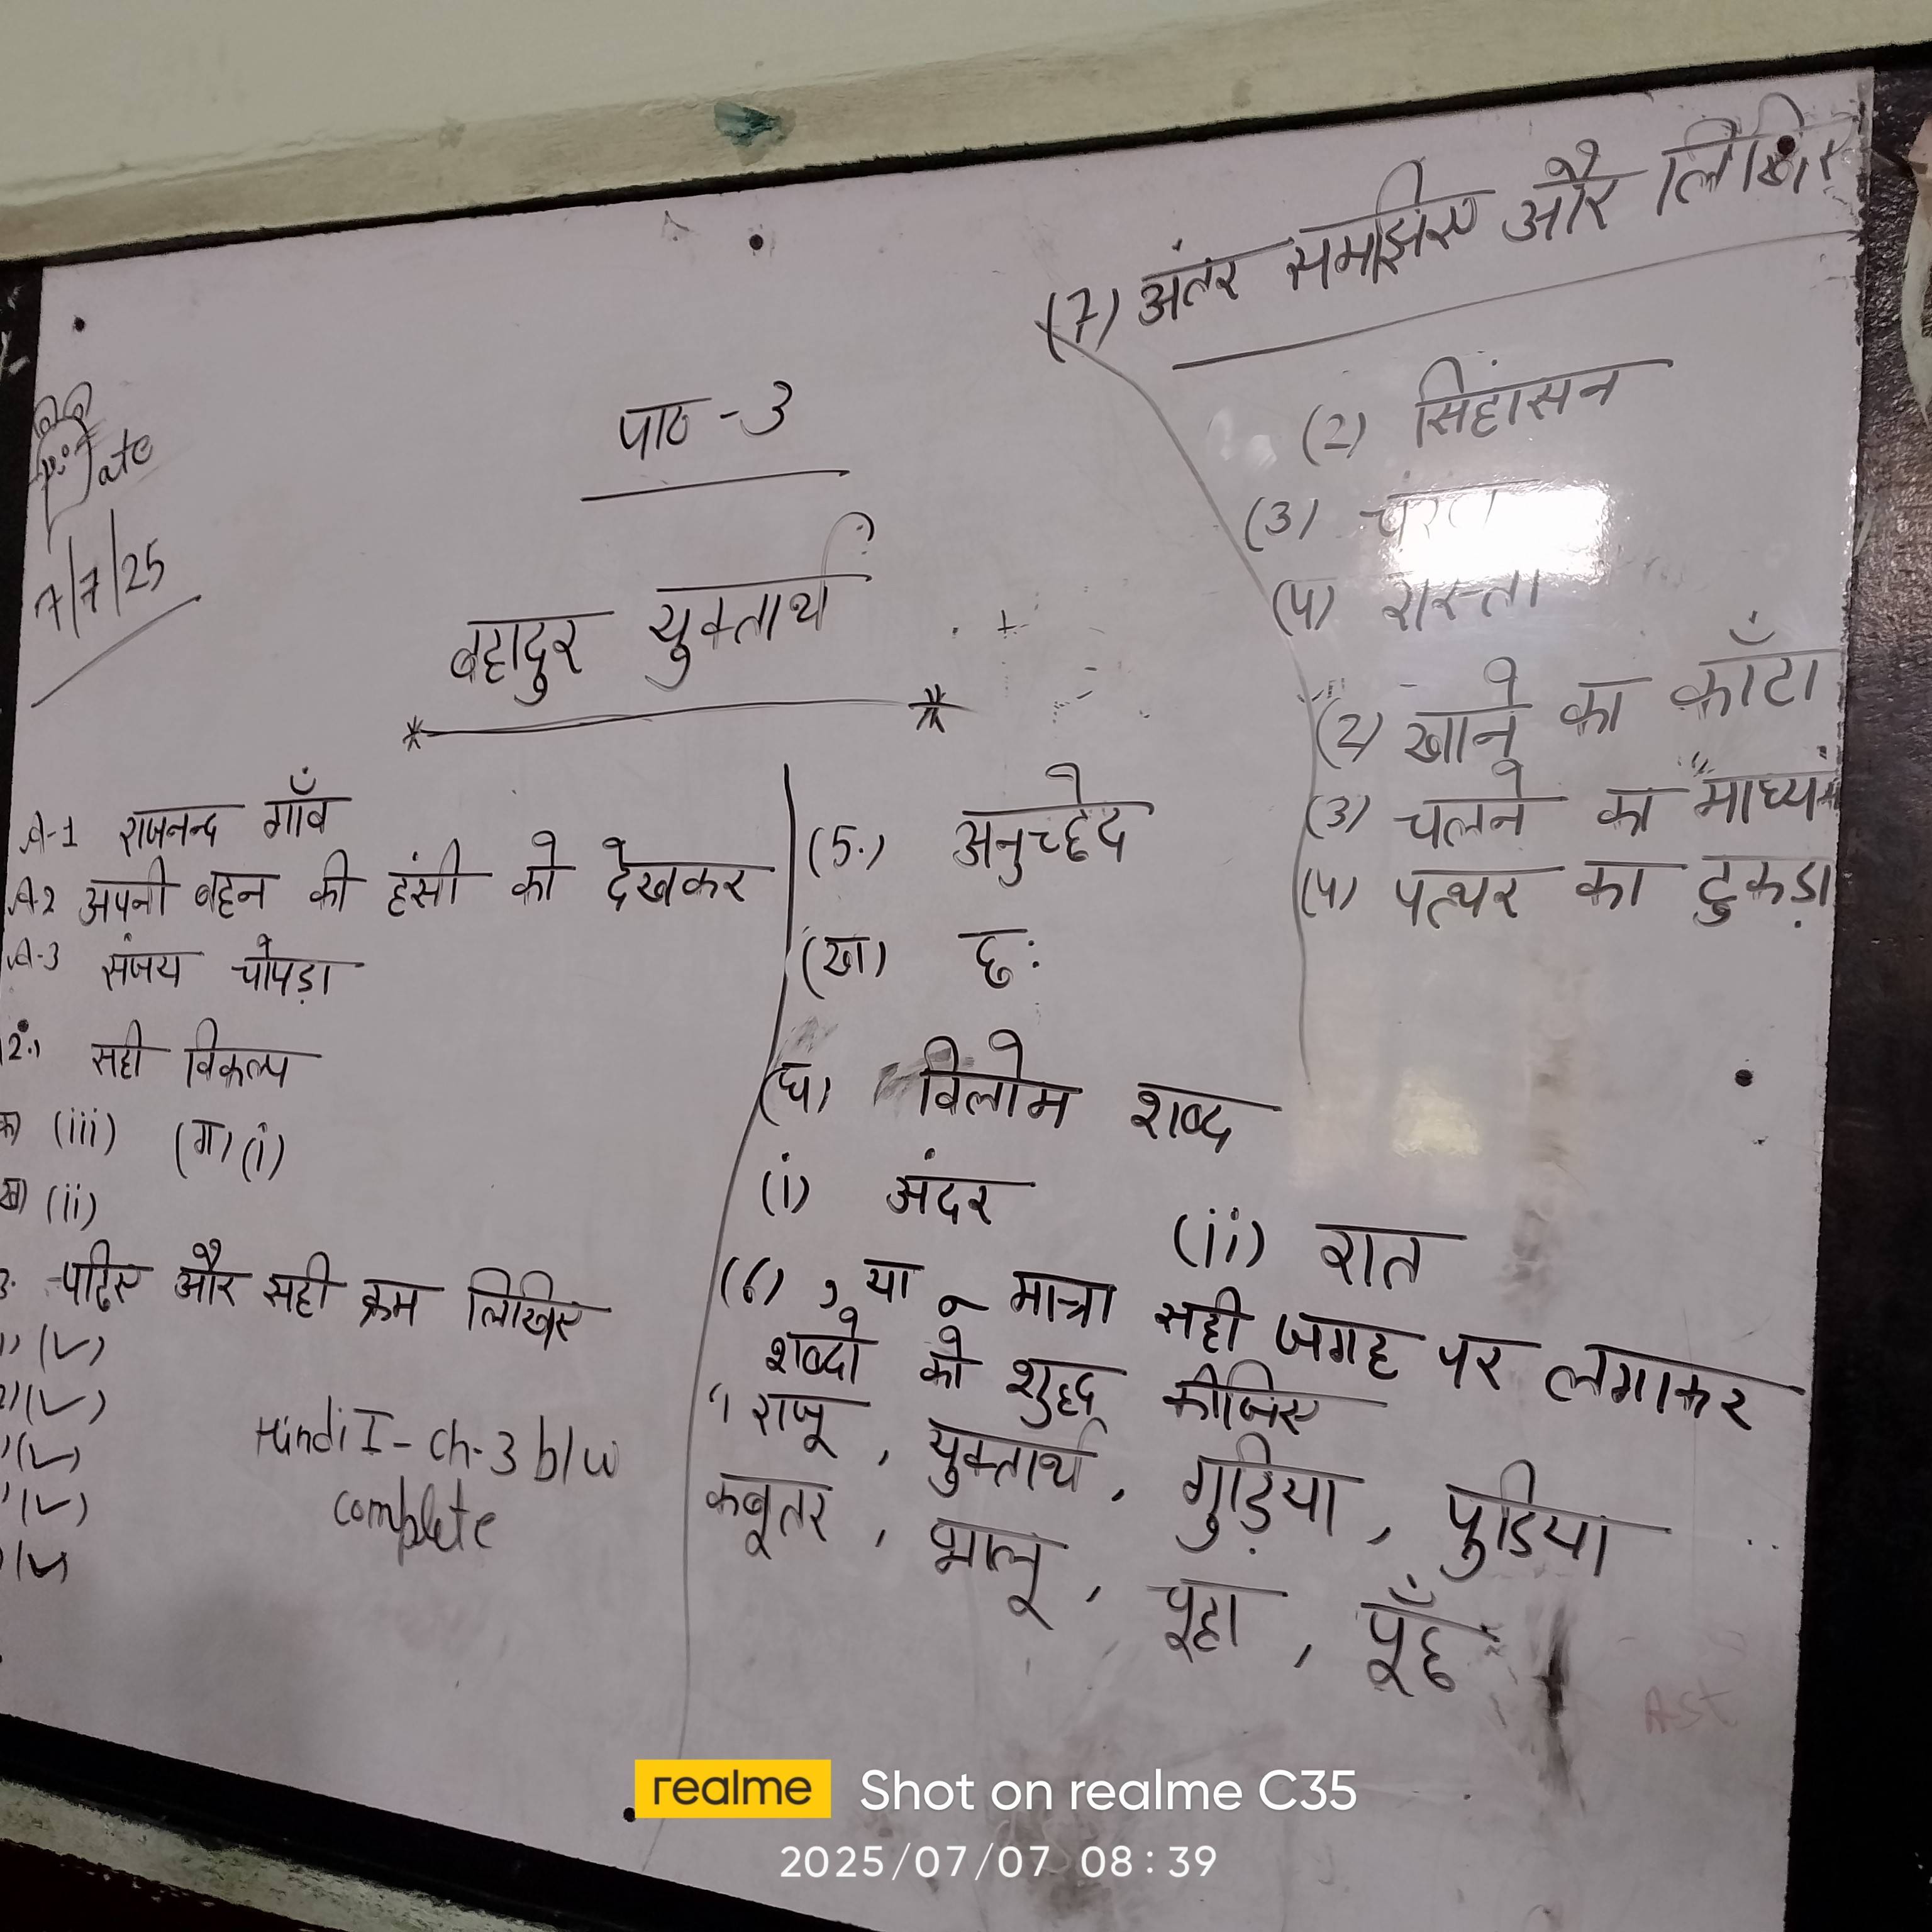 Date
7/7/25
पाठ - 3
बहादुर युक्तार्थ
A-1 राजनन्द गाँव
A-2 अपनी बहन की हंसी को देखकर
A-3 संजय चोपड़ा
2. सही विकल्प
क) (iii) (ग) (i)
ख) (ii)
3. पढ़िए और सही क्रम लिखिए
Hindi I - Ch-3 b/w
complete
(5.) अनुच्छेद
(ख) छः
(घ) विलोम शब्द
(i) अंदर (ii) रात
(6) ु या ू मात्रा सही जगह पर लगाकर
शब्दो को शुद्ध कीजिए
राजू , युक्तार्थ , गुड़िया , पुडिया
कबूतर , भालू , चूहा , पूँछ
(7) अंतर समझिए और लिखिए
(2) सिहांसन
(3)
(4) रास्ता
(2) खाने का काँटा
(3) चलने का माध्यम
(4) पत्थर का टुकड़ा
Ast
realme Shot on realme C35
2025/07/07 08:39